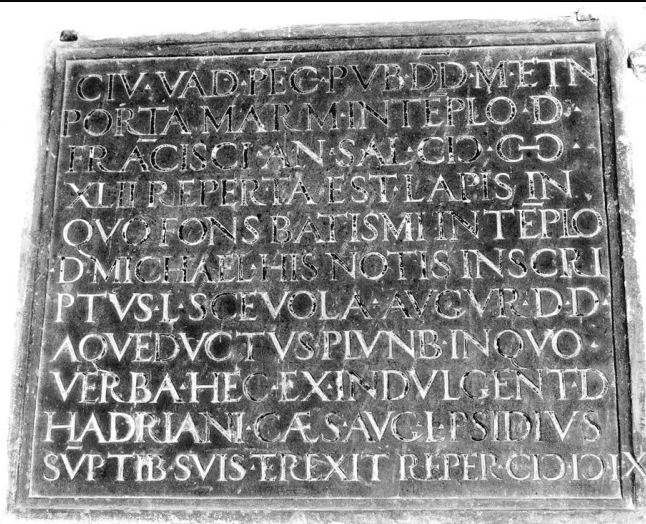 CIV·VAD·PĒC·PVB·D̄D̄·M·ETN
PORTA MARM·IN TĒPLO·D·
FRĀCISCI·AN·SAL·CIↃ·C-Ↄ·
XLII REPERTA EST·LAPIS IN
QVO FONS BATISMI IN TĒPLO
·D·MICHAEL·HIS NOTIS INSCRI
PTVS·L·SCEVOLA·AVGVR·D·D·
AQVEDVCTVS PLVNB·IN QVO·
VERBA·HEC·EX·INDVLGENT·D
HADRIANI·CÆS·AVG·L·PSIDIVS
SV̄PTIB·SVIS·EREXIT REPER·CIↃ·IↃ·IX